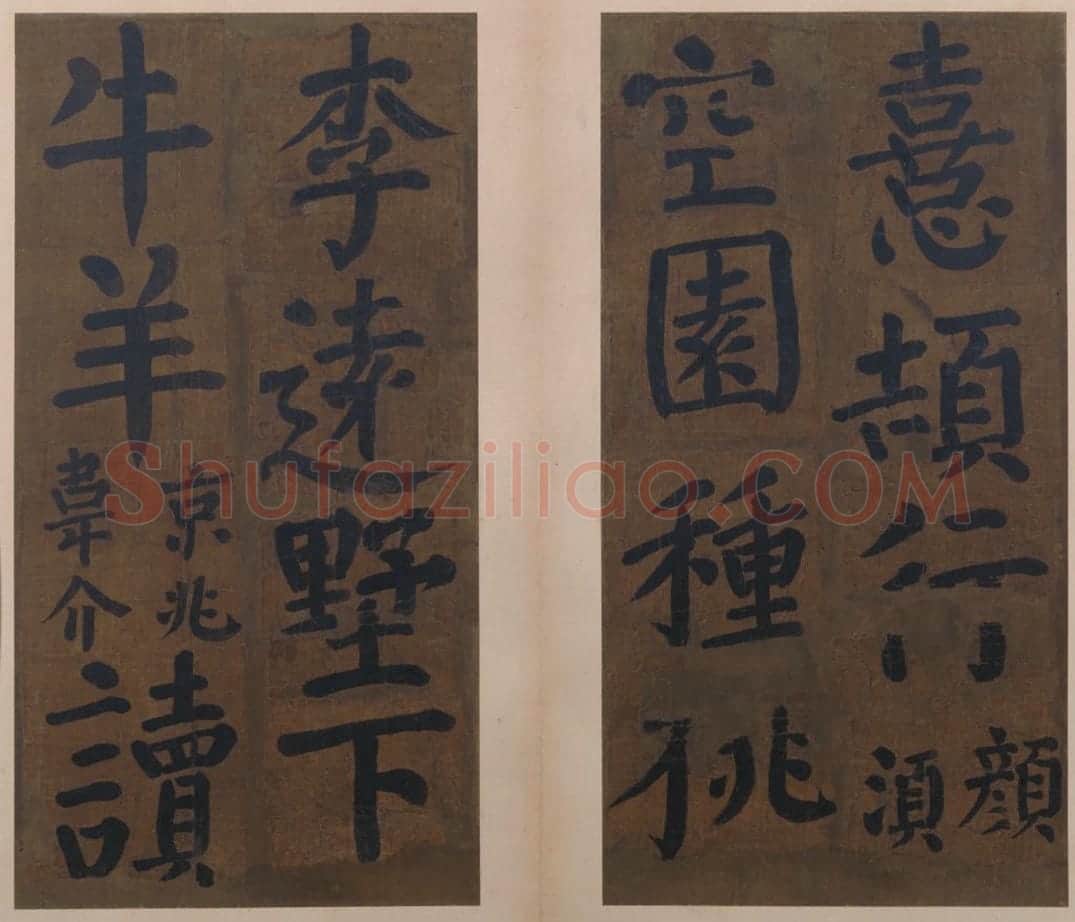 憙頡行顏須
空園種桃
李遠墅下
牛羊京兆韋介讀
Shufaziliao.COM